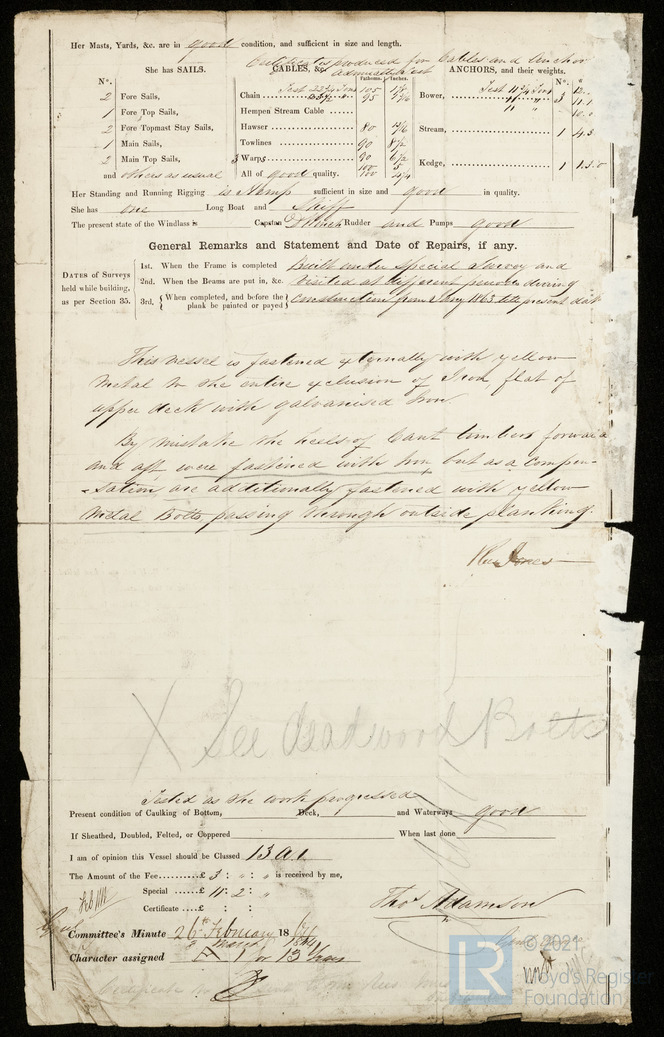 Her Masts, Yards, &c. are in good condition, and sufficient in size and length.
Certificates produced for Cables and Anchor
She has SAILS. CABLES, &c. ANCHORS, and their weights.
Nº. Fathoms. Inches. Nº.
2 Fore Sails,
1 Fore Top Sails,
2 Fore Topmast Stay Sails,
1 Main Sails,
2 Main Top Sails,
and others as usual
Chain 105
95
Hempen Stream Cable
Hawser 80
Towlines 90 8½
3 Warps 90 6½
100 5
All of good quality. 100
Bower, Test 3
Stream, 1
Kedge, 1
Her Standing and Running Rigging is Hemp sufficient in size and good in quality.
She has one Long Boat and Skiff
The present state of the Windlass is Capstan Rudder and Pumps good
General Remarks and Statement and Date of Repairs, if any.
DATES of Surveys held while building, as per Section 35.
1st. When the Frame is completed Built under special Survey and
2nd. When the Beams are put in, &c. Visited at different periods during
3rd. { When completed, and before the plank be painted or payed } construction from 1863 to the present date
This vessel is fastened externally with yellow
Metal to the entire exclusion of Iron flat of
upper deck with galvanised Iron.
By mistake the heels of Cant timbers forward
and aft were fastened with Iron but as a compen-
-sation are additionally fastened with yellow
Metal Bolts passing through outside planking.
Jones
X See deadwood Bolts
Tested as the work progressed
Present condition of Caulking of Bottom, Deck, and Waterways good
If Sheathed, Doubled, Felted, or Coppered When last done
I am of opinion this Vessel should be Classed 13 A 1
The Amount of the Fee......£ 3 : " : " is received by me,
Special ......£ 11 : 2 : "
Certificate ...£ : :
Thos Adamson
Committee's Minute 26th February 1864
March 1864
Character assigned A 1 for 13 Years
LR © 2021
Lloyd's Register
Foundation